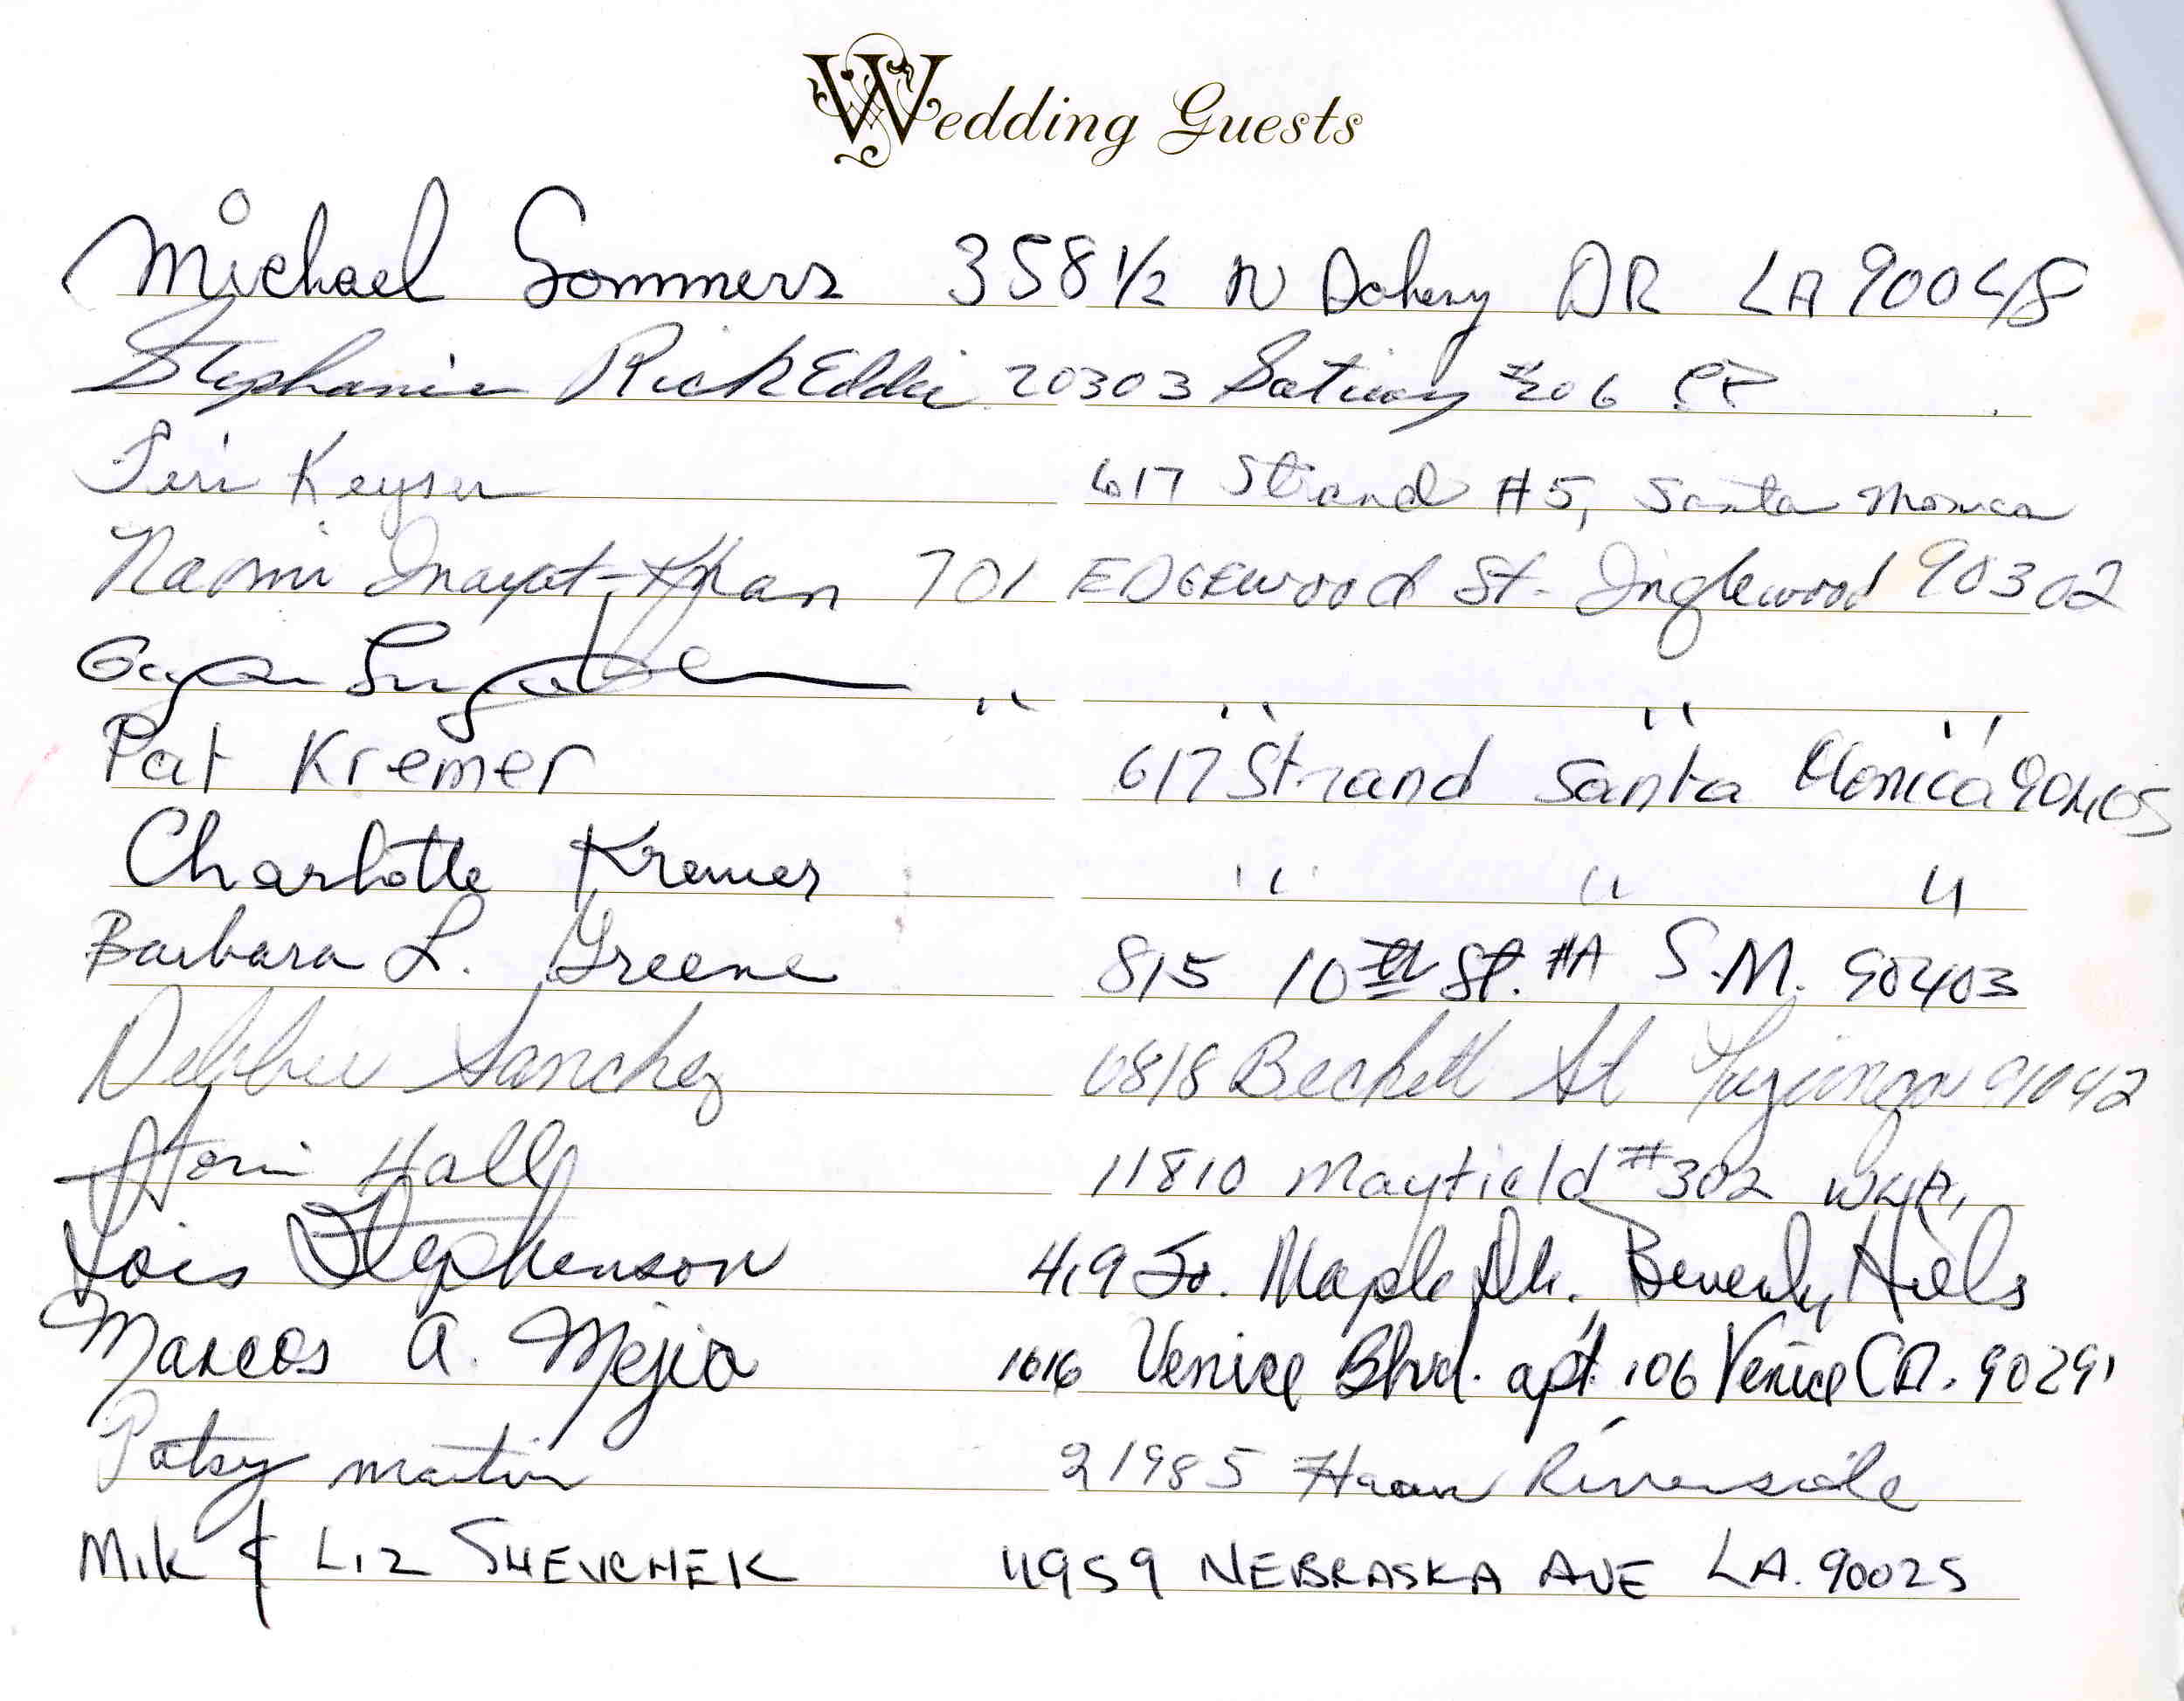 Wedding Guests
Michael Sommers 358 1/2 N Doheny DR LA 90048
Stephanie Rick Eddie 20303 Saticoy #206
Teri Keyser 617 Strand #5, Santa Monica
Naomi Inayat-Khan 701 EDGEwood St. Inglewood 90302
" " " "
Pat Kremer 617 Strand Santa Monica 90405
Charlotte Kremer " " "
Barbara L. Greene 815 10th St. #A S.M. 90403
Debbie Sanchez St 91042
Hall 11810 Mayfield #302 WLA,
Lois Stephenson 419 So. Maple Dr. Beverly Hills
Marcos A. Mejia 1616 Venice Blvd. apt. 106 Venice CA. 90291
Patsy Martin 21985 Riverside
MIK & LIZ SHEVCHEK 11959 NEBRASKA AVE LA. 90025